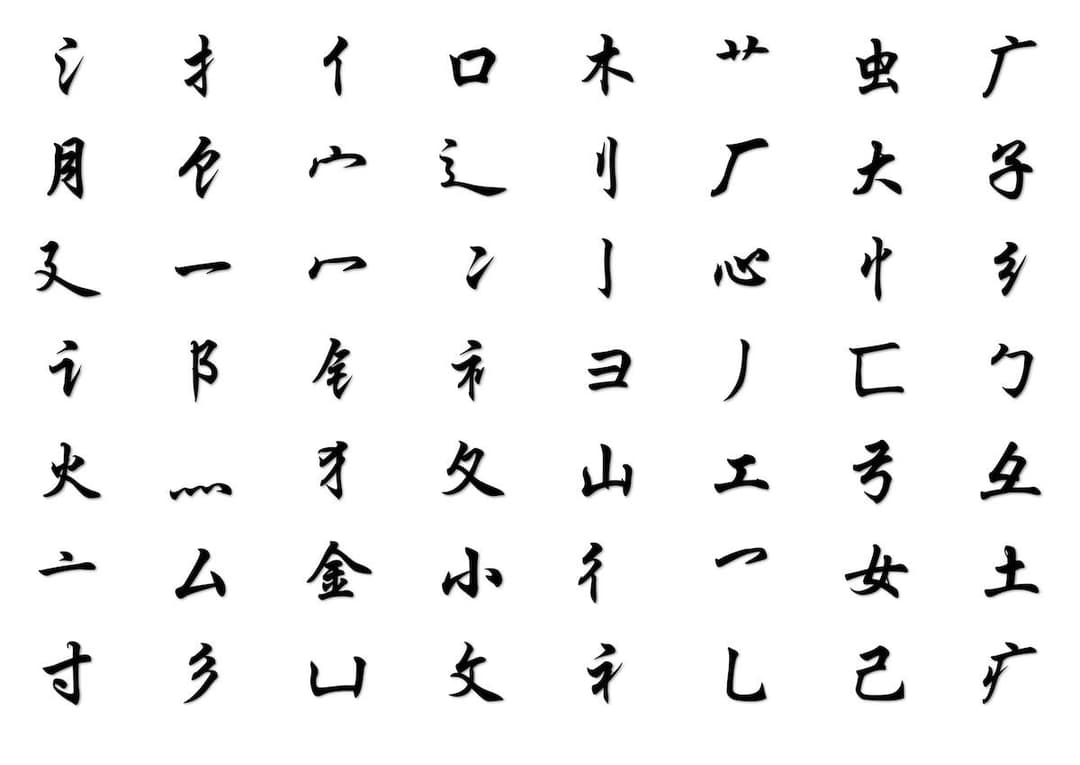 氵 扌 亻 口 木 艹 虫 广
月 饣 宀 辶 刂 厂 大 子
廴 一 冖 冫 亅 心 忄 纟
讠 阝 钅 衤 彐 丿 匚 勹
火 灬 犭 夂 山 工 弓
亠 厶 金 小 彳 乛 女 土
寸 彡 凵 攵 礻 乚 己 疒